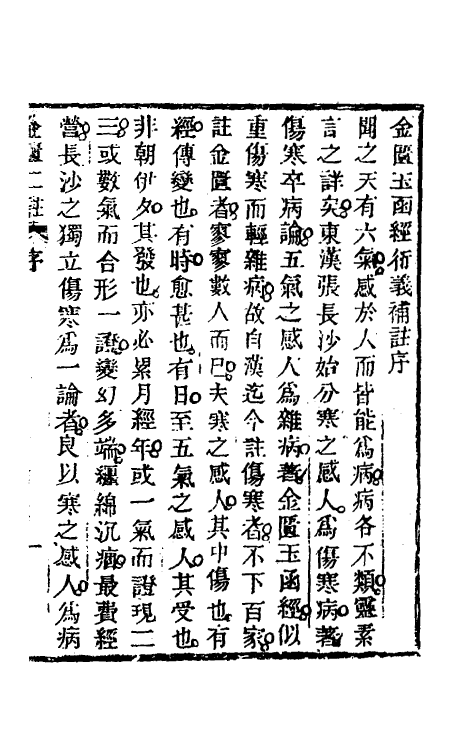 金匱玉函經衍義補註序
聞之天有六氣感於人而皆能爲病病各不類靈素
言之詳矣東漢張長沙始分寒之感人爲傷寒病著
傷寒卒病論五氣之感人爲雜病著金匱玉函經似
重傷寒而輕雜病故自漢迄今註傷寒者不下百家
註金匱者寥寥數人而已夫寒之感人其中傷也有
經傳變也有時愈甚也有日至五氣之感人其受也
非朝伊夕其發也亦必累月經年或一氣而證現二
三或數氣而合形一證變幻多端纒綿沉痼最費經
營長沙之獨立傷寒爲一論者良以寒之感人爲病
金匱二註 序 一